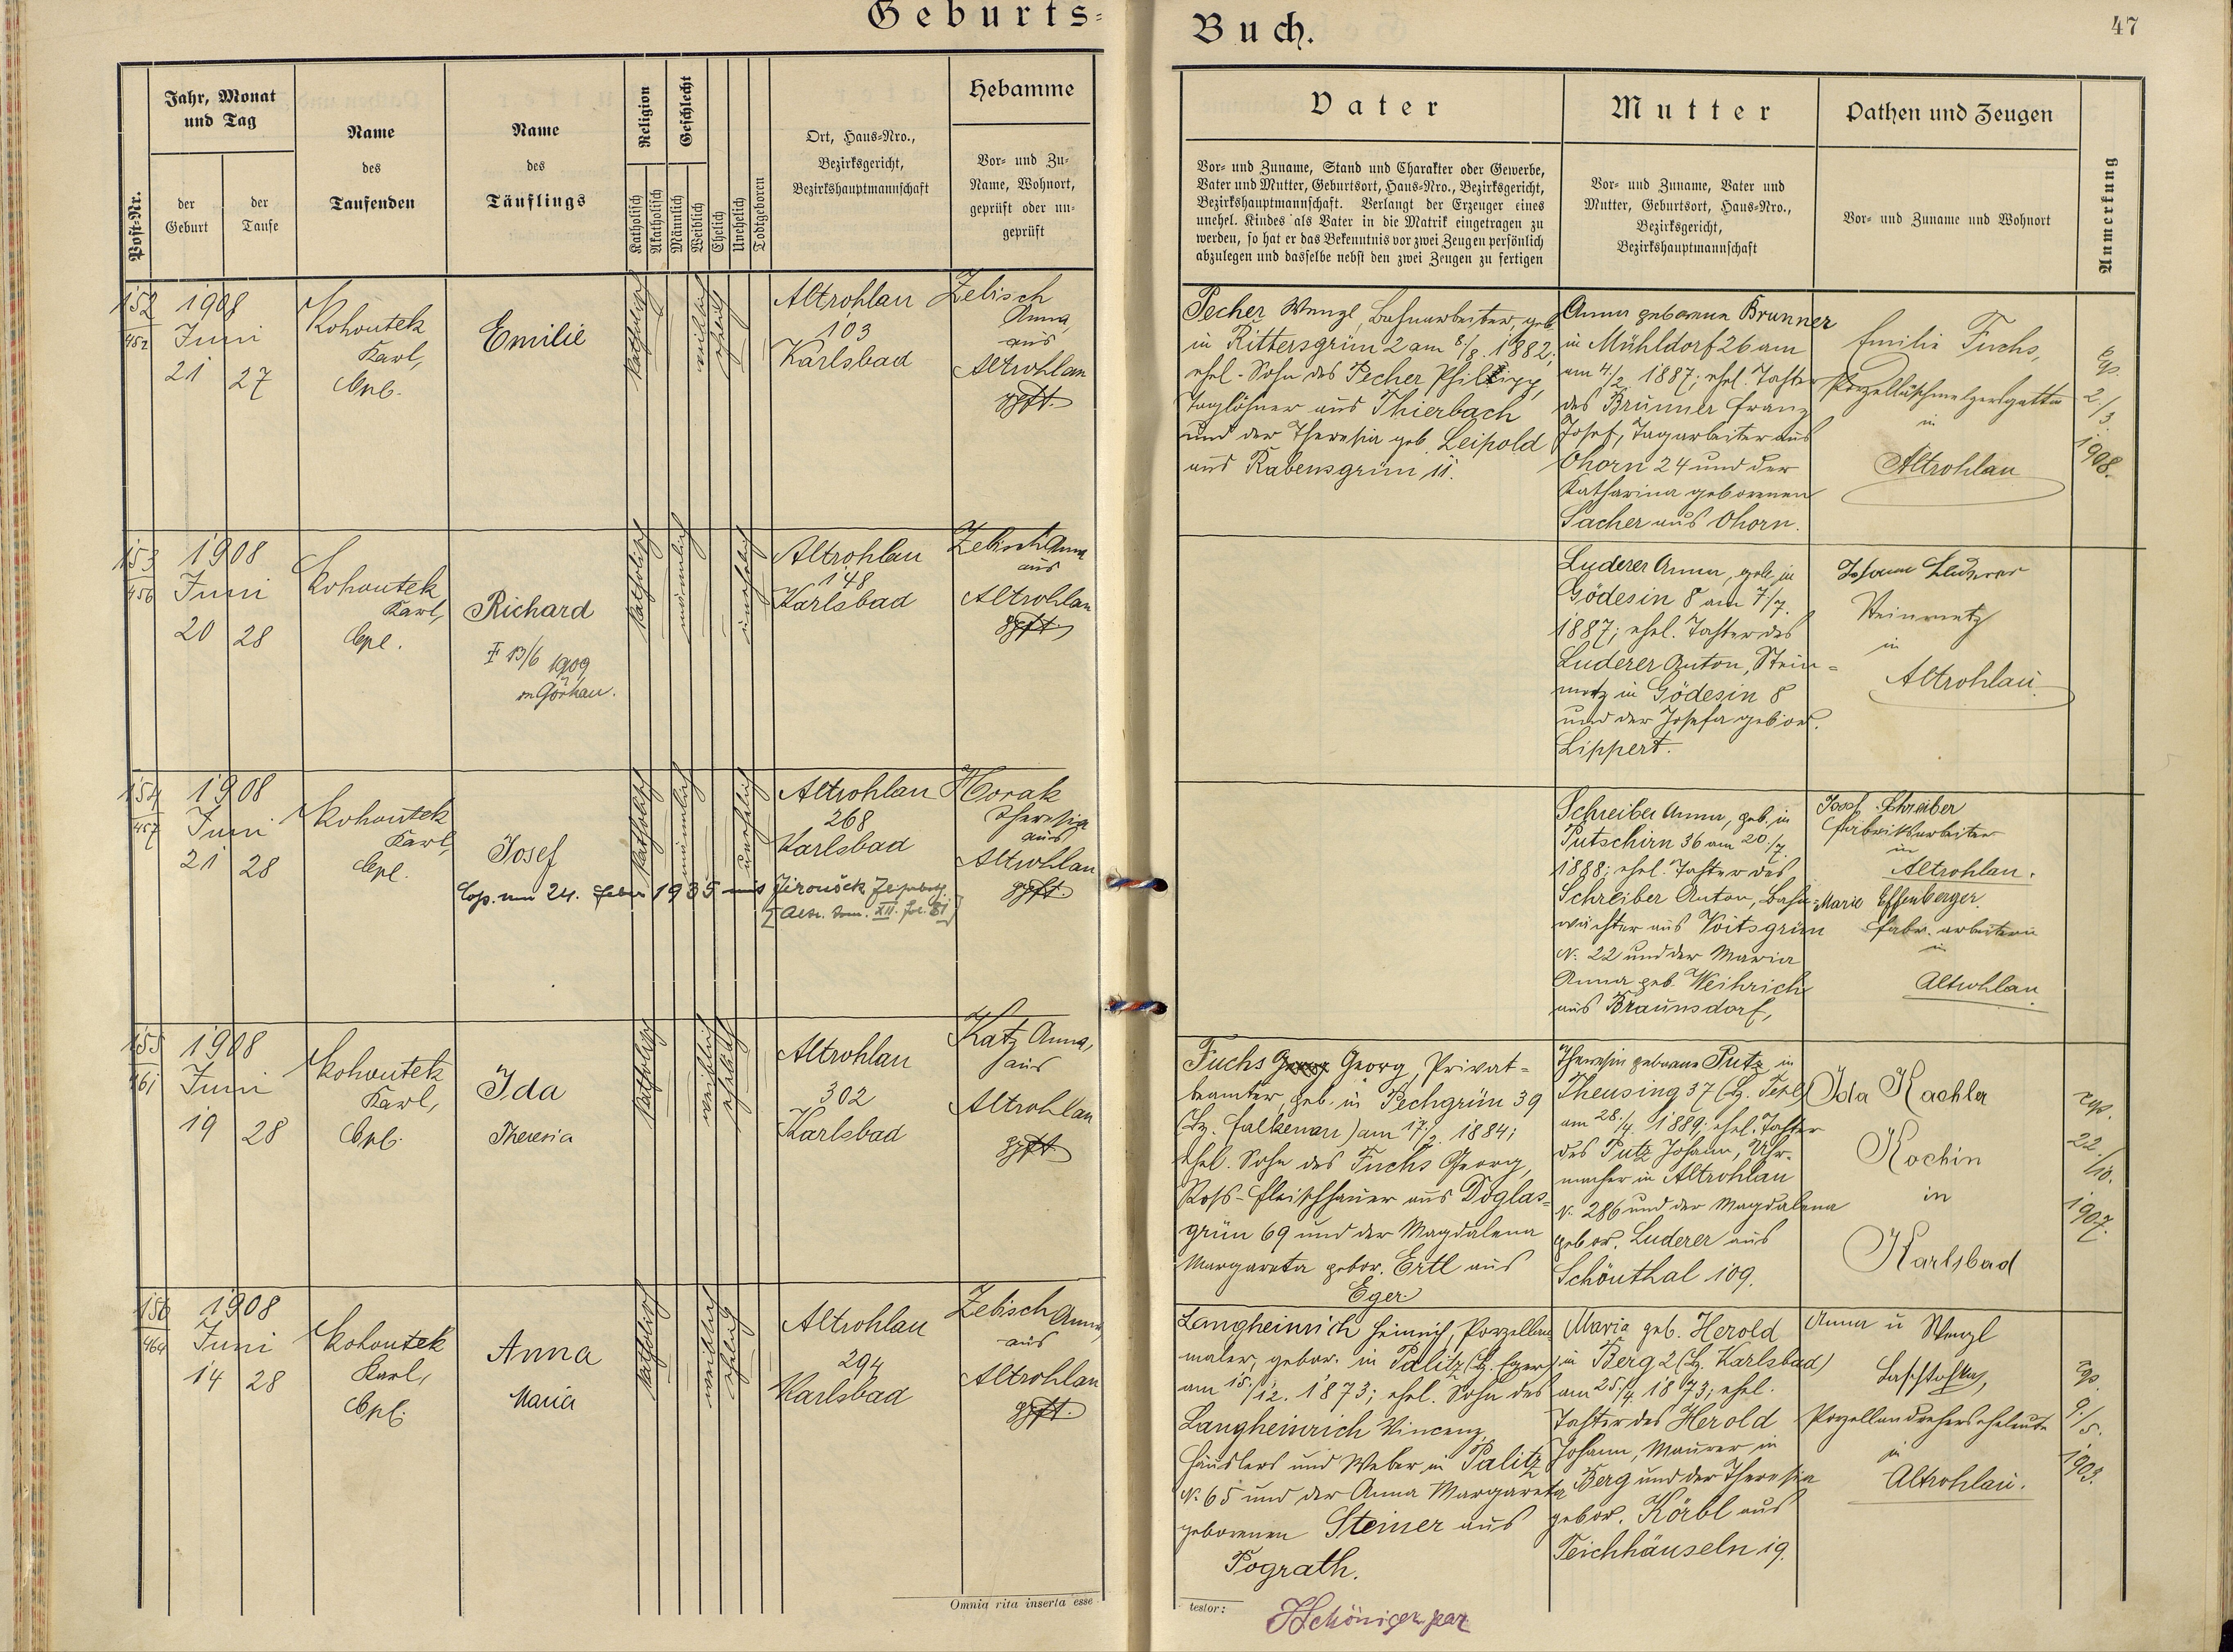 Geburts-
Buch.
47
Post-Nr.
Jahr, Monat
und Tag
der
Geburt
der
Taufe
Name
des
Taufenden
Name
des
Täuflings
Religion
Katholisch
Akatholisch
Geschlecht
Männlich
Weiblich
Ehelich
Unehelich
Todtgeboren
Ort, Haus-Nro.,
Bezirksgericht,
Bezirkshauptmannschaft
Hebamme
Vor- und Zu-
Name, Wohnort,
geprüft oder un-
geprüft
Vater
Vor- und Zuname, Stand und Charakter oder Gewerbe,
Vater und Mutter, Geburtsort, Haus-Nro., Bezirksgericht,
Bezirkshauptmannschaft. Verlangt der Erzeuger eines
unehel. Kindes als Vater in die Matrik eingetragen zu
werden, so hat er das Bekenntnis vor zwei Zeugen persönlich
abzulegen und dasselbe nebst den zwei Zeugen zu fertigen
Mutter
Vor- und Zuname, Vater und
Mutter, Geburtsort, Haus-Nro.,
Bezirksgericht,
Bezirkshauptmannschaft
Pathen und Zeugen
Vor- und Zuname und Wohnort
Anmerkung
152
452
1908
Juni
21 27
Kohoutek
Karl,
Cpl.
Emilie
katholisch
weiblich
ehelich
Altrohlau
103
Karlsbad
Zebisch
Anna,
aus
Altrohlau
gpft.
Pecher Wenzl, Bahnarbeiter, geb.
in Rittersgrün 2 am 8/8. 1882,
ehel. Sohn des Pecher Philipp,
Taglöhner aus Thierbach
und der Theresia geb. Leipold
aus Rabensgrün 11.
Anna geborene Brunner
in Mühldorf 26 am
am 4./2. 1887; ehel. Tochter
des Brunner Franz
Josef, Tagarbeiter aus
Ohorn 24 und der
Katharina geborenen
Sacher aus Ohorn.
Emilie Fuchs,
Porzellanschmelzersgattin
in
Altrohlau
Cop.
2./3.
1908.
153
456
1908
Juni
20 28
Kohoutek
Karl,
Cpl.
Richard
† 13/6 1909
in Görkau.
katholisch
männlich
unehelich
Altrohlau
148
Karlsbad
Zebisch Anna
aus
Altrohlau
gpft.
Luderer Anna, geb. in
Gödesin 8 am 7/7.
1887; ehel. Tochter des
Luderer Anton, Stein-
metz in Gödesin 8
und der Josefa gebor.
Lippert.
Johann Luderer
Steinmetz
in
Altrohlau
154
457
1908
Juni
21 28
Kohoutek
Karl,
Cpl.
Josef
katholisch
männlich
unehelich
Altrohlau
268
Karlsbad
Horak
Theresia
aus
Altrohlau
gpft.
Cop. am 24. Feber 1935 mit Jiroušek
Schreiber Anna, geb. in
Putschirn 36 am 20./7.
1888; ehel. Tochter des
Schreiber Anton, Bahn-
wächter aus Voitsgrün
N. 22 und der Maria
Anna geb. Weihrich
aus Braunsdorf,
Josef Schreiber
Fabriksarbeiter
in
Altrohlau.
Marie Effenberger
Fabr. arbeiterin
in
Altrohlau
155
461
1908
Juni
19 28
Kohoutek
Karl,
Cpl.
Ida
Theresia
katholisch
weiblich
ehelich
Altrohlau
302
Karlsbad
Katz Anna,
aus
Altrohlau
gpft.
Fuchs Georg, Privat-
beamter, geb. in Pechgrün 39
(Bz. Falkenau) am 17./2. 1884;
ehel. Sohn des Fuchs Georg,
Ross-Fleischhauer aus Doglas-
grün 69 und der Magdalena
Margareta gebor. Ertl aus
Eger
Theresia geborene Putz in
Theusing 37 (Bz. Tepl)
am 28./4. 1889; ehel. Tochter
des Putz Johann, Uhr-
macher in Altrohlau
N. 286 und der Magdalena
gebor. Luderer aus
Schönthal 109.
Ida Kachler
Köchin
in
Karlsbad
cop.
22./10.
1907.
156
464
1908
Juni
14 28
Kohoutek
Karl,
Cpl.
Anna
Maria
katholisch
weiblich
ehelich
Altrohlau
294
Karlsbad
Zebisch Anna
aus
Altrohlau
gpft.
Langheinrich Heinrich, Porzellan-
maler, gebor. in Palitz (Bz. Eger)
am 15./12. 1873; ehel. Sohn des
Langheinrich Vincenz,
Häuslers und Weber in Palitz
N. 65 und der Anna Margareta
geborenen Steiner aus
Pograth.
Maria geb. Herold
in Berg 2 (Bz. Karlsbad)
am 25./4. 1873; ehel.
Tochter des Herold
Johann, Maurer in
Berg und der Theresia
gebor. Körbl aus
Teichhäuseln 19.
Anna u Wenzl
Porzellandreherseheleute
in
Altrohlau.
cop.
9./5.
Omnia rita inserta esse
testor: